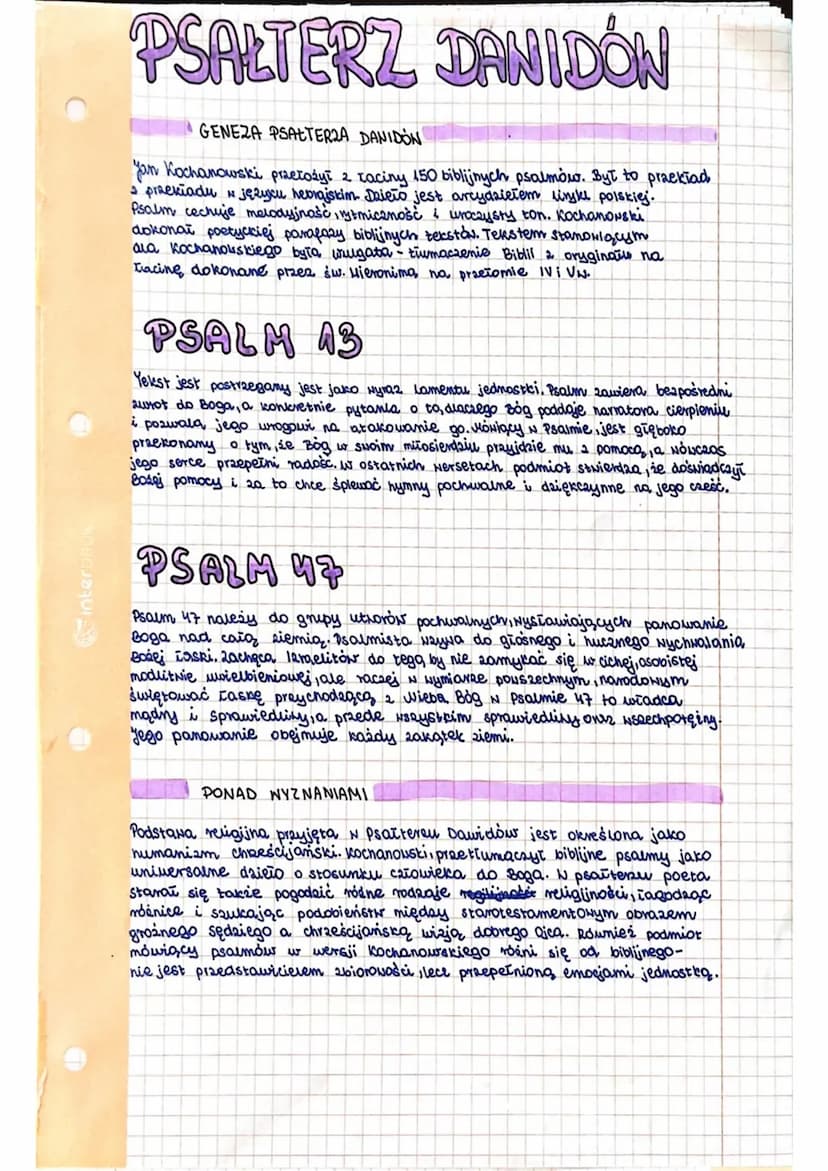 PSAŁTERZ DAWIDÓW
GENEZA PSAŁTERZA DAWIDÓW
Jan Kochanowski przełożył z łaciny 150 biblijnych psalmów. Był to przekład
z przekładu w języku hebrajskim. Dzieło jest arcydziełem liryki polskiej.
Psalm cechuje melodyjność, rytmiczność i uroczysty ton. Kochanowski
dokonał poetyckiej parafrazy biblijnych tekstów. Tekstem stanowiącym
dla Kochanowskiego była wulgata - tłumaczenie Biblii z oryginału na
łacinę dokonane przez św. Hieronima na przełomie IV i V w.
PSALM 13
Tekst jest postrzegany jest jako wyraz lamentu jednostki. Psalm zawiera bezpośredni
zwrot do Boga, a konkretnie pytania o to, dlaczego Bóg poddaje narratora cierpieniu
i pozwala, jego wrogowi na atakowanie go. Mówiący w Psalmie, jest głęboko
przekonany o tym, że Bóg w swoim miłosierdziu przyjdzie mu z pomocą, a wówczas
jego serce przepełni radość. W ostatnich wersetach podmiot stwierdza, że doświadczył
Bożej pomocy i za to chce śpiewać hymny pochwalne i dziękczynne na jego cześć.
PSALM 47
Psalm 47 należy do grupy utworów pochwalnych, wysławiających panowanie
Boga nad całą ziemią. Psalmista wzywa do głośnego i hucznego wychwalania
Bożej łaski. Zachęca Izraelitów do tego, by nie zamykać się w cichej, osobistej
modlitwie uwielbieniowej, ale raczej w wymiarze powszechnym, narodowym
świętować łaskę przychodzącą z Nieba. Bóg w Psalmie 47 to władca
mądry i sprawiedliwy, a przede wszystkim sprawiedliwy oraz wszechpotężny.
Jego panowanie obejmuje każdy zakątek ziemi.
PONAD WYZNANIAMI
Podstawa religijna przyjęta w Psałterzu Dawidów jest określona jako
humanizm chrześcijański. Kochanowski, przetłumaczył biblijne psalmy jako
uniwersalne dzieło o stosunku człowieka do Boga. W psałterzu poeta
starał się także pogodzić różne rodzaje religijności, łagodząc
różnice i szukając podobieństw między starotestamentowym obrazem
groźnego sędziego a chrześcijańską wizją dobrego Ojca. Również podmiot
mówiący psalmów w wersji Kochanowskiego różni się od biblijnego-
nie jest przedstawicielem zbiorowości, lecz przepełnioną emocjami jednostką.